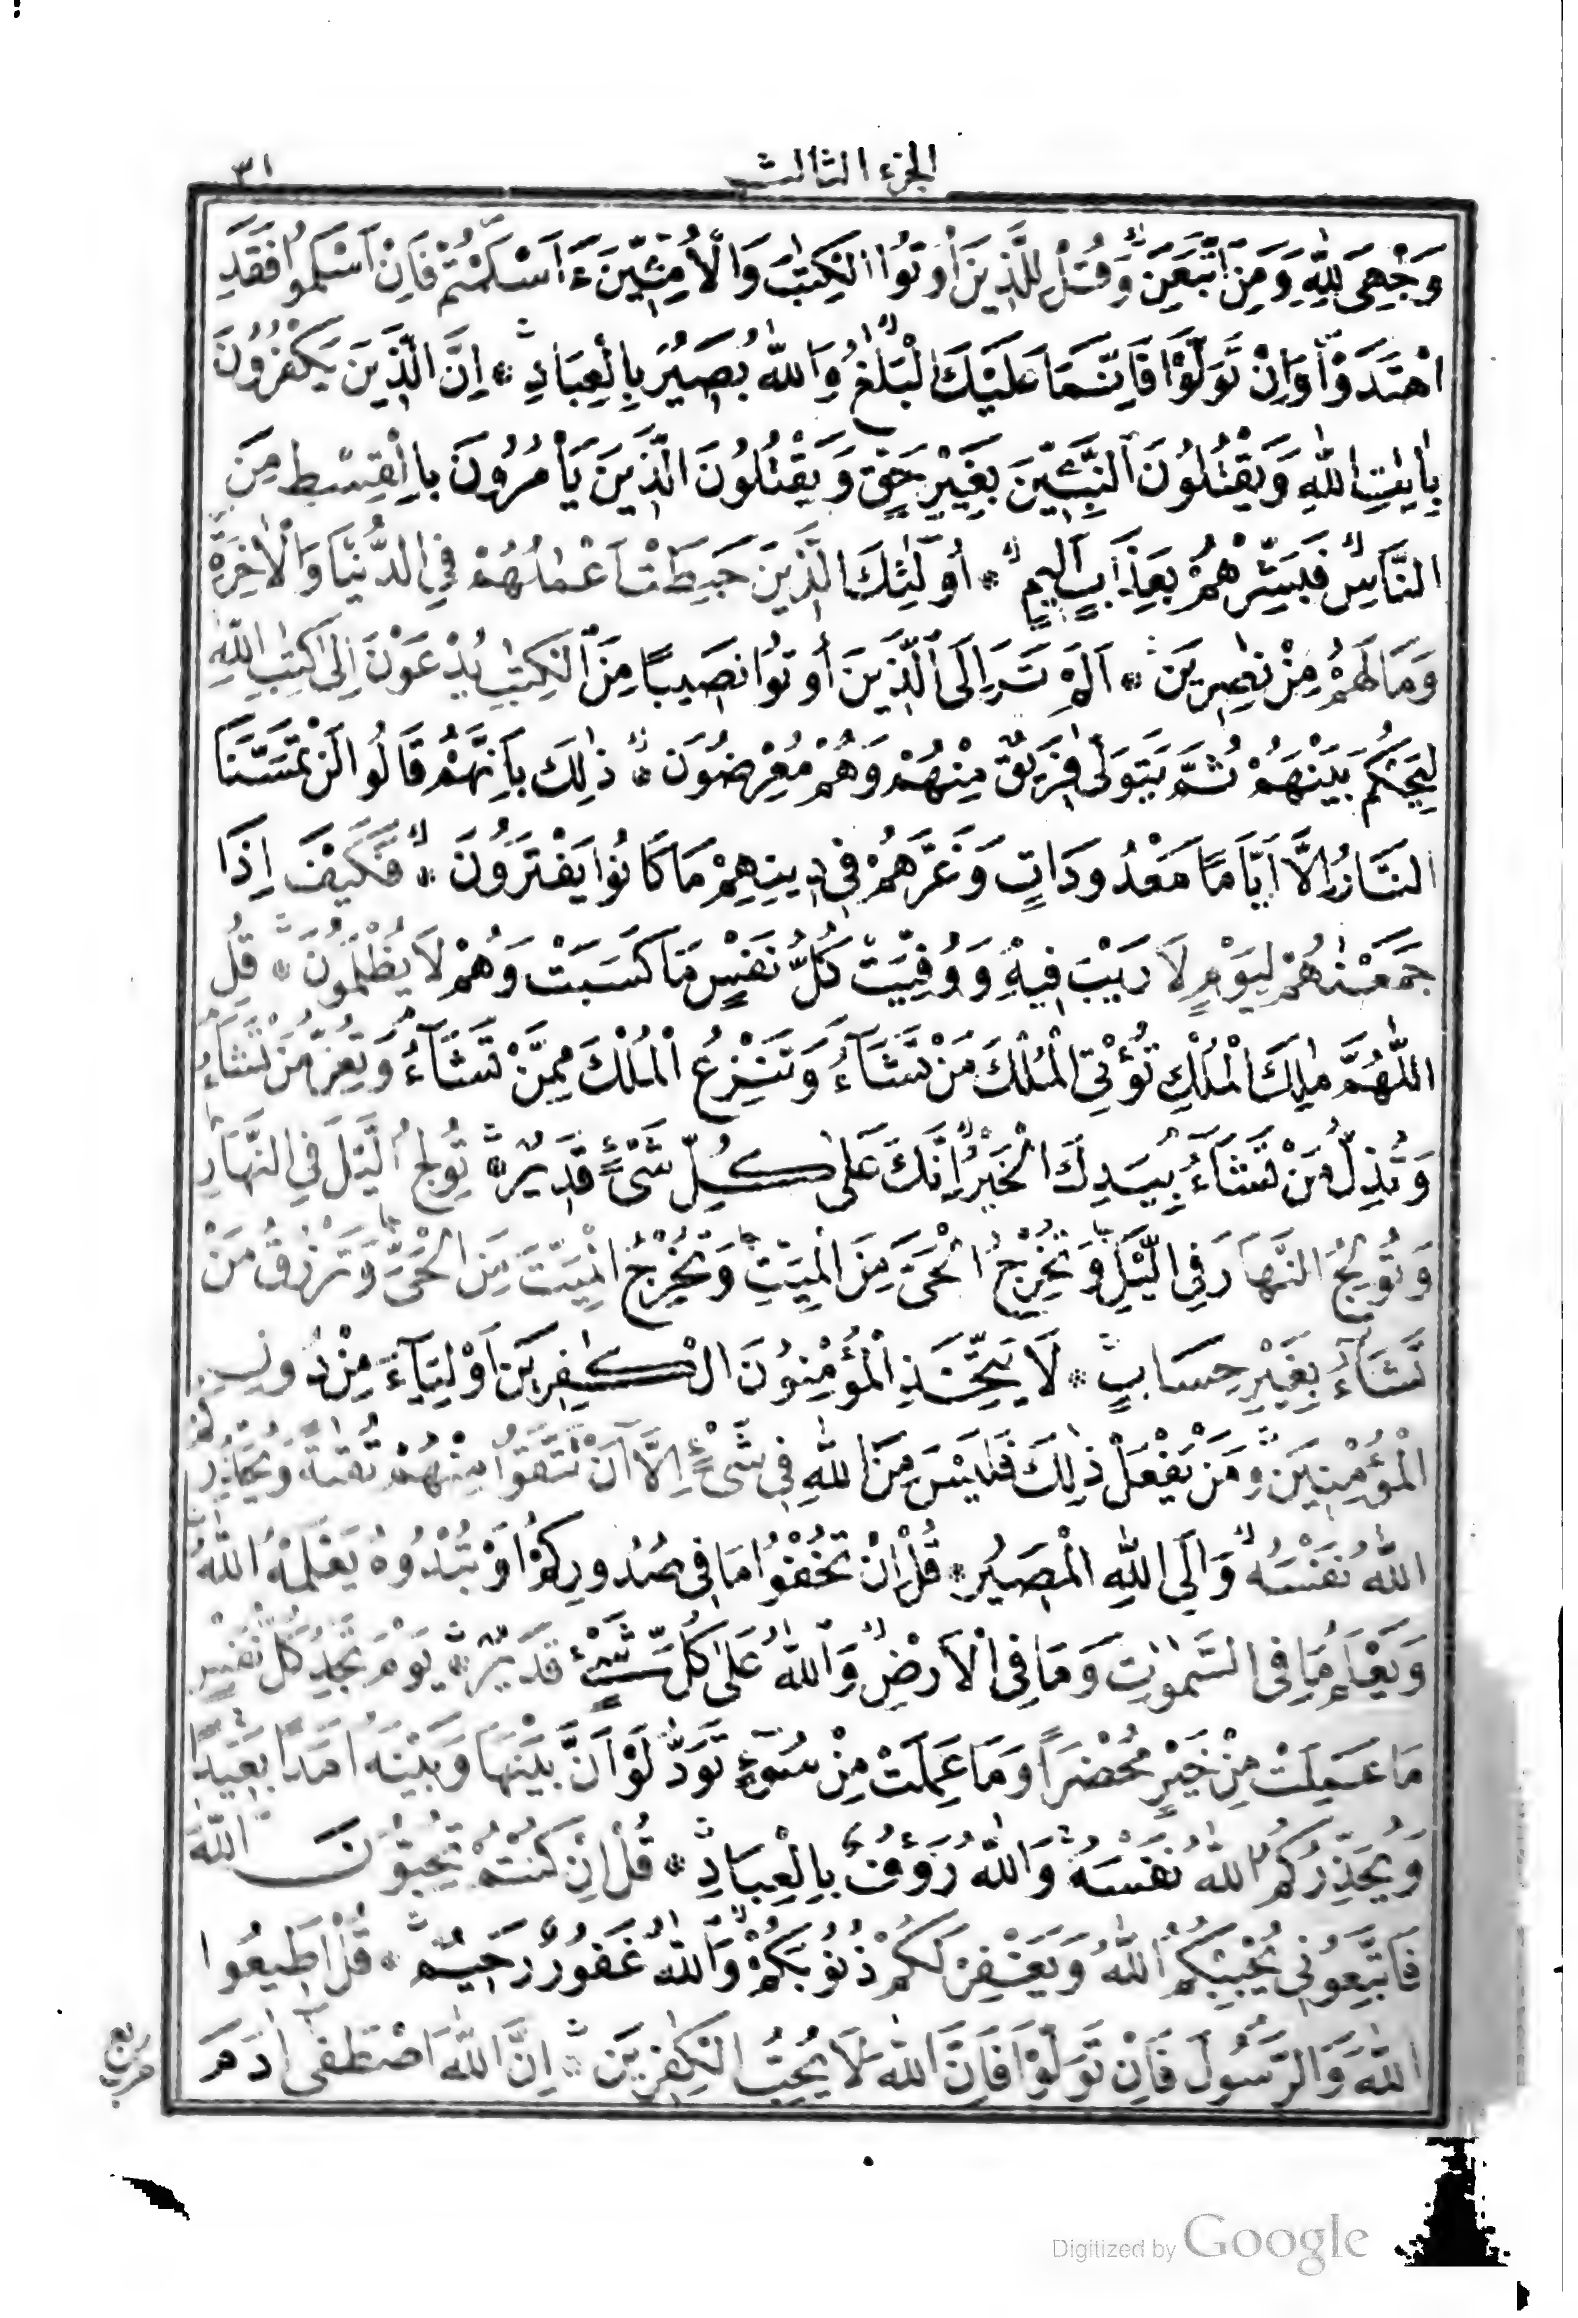 الجزء الثالث ٣١
وَجْهِىَ لِلّٰهِ وَمَنِ اتَّبَعَنِ وَقُلْ لِلَّذِينَ أُوتُوا الْكِتٰبَ وَالْأُمِّيِّينَ ءَاَسْلَمْتُمْ فَاِنْ اَسْلَمُوا فَقَدِ
اهْتَدَوْا وَاِنْ تَوَلَّوْا فَاِنَّمَا عَلَيْكَ الْبَلٰغُ وَاللّٰهُ بَصِيرٌ بِالْعِبَادِ ۞ اِنَّ الَّذِينَ يَكْفُرُونَ
بِاٰيٰتِ اللّٰهِ وَيَقْتُلُونَ النَّبِيِّينَ بِغَيْرِ حَقٍّ وَيَقْتُلُونَ الَّذِينَ يَاْمُرُونَ بِالْقِسْطِ مِنَ
النَّاسِ فَبَشِّرْهُمْ بِعَذَابٍ اَلِيمٍ ۞ اُولٰئِكَ الَّذِينَ حَبِطَتْ اَعْمٰلُهُمْ فِي الدُّنْيَا وَالْاٰخِرَةِ
وَمَا لَهُمْ مِنْ نٰصِرِينَ ۞ اَلَمْ تَرَ اِلَى الَّذِينَ اُوتُوا نَصِيبًا مِنَ الْكِتٰبِ يُدْعَوْنَ اِلٰى كِتٰبِ اللّٰهِ
لِيَحْكُمَ بَيْنَهُمْ ثُمَّ يَتَوَلّٰى فَرِيقٌ مِنْهُمْ وَهُمْ مُعْرِضُونَ ۞ ذٰلِكَ بِاَنَّهُمْ قَالُوا لَنْ تَمَسَّنَا
النَّارُ اِلَّا اَيَّامًا مَعْدُودَاتٍ وَغَرَّهُمْ فِي دِينِهِمْ مَا كَانُوا يَفْتَرُونَ ۞ فَكَيْفَ اِذَا
جَمَعْنٰهُمْ لِيَوْمٍ لَا رَيْبَ فِيهِ وَوُفِّيَتْ كُلُّ نَفْسٍ مَا كَسَبَتْ وَهُمْ لَا يُظْلَمُونَ ۞ قُلِ
اللّٰهُمَّ مٰلِكَ الْمُلْكِ تُؤْتِي الْمُلْكَ مَنْ تَشَآءُ وَتَنْزِعُ الْمُلْكَ مِمَّنْ تَشَآءُ وَتُعِزُّ مَنْ تَشَآءُ
وَتُذِلُّ مَنْ تَشَآءُ بِيَدِكَ الْخَيْرُ اِنَّكَ عَلٰى كُلِّ شَىْءٍ قَدِيرٌ ۞ تُولِجُ الَّيْلَ فِي النَّهَارِ
وَتُولِجُ النَّهَارَ فِي الَّيْلِ وَتُخْرِجُ الْحَىَّ مِنَ الْمَيِّتِ وَتُخْرِجُ الْمَيِّتَ مِنَ الْحَىِّ وَتَرْزُقُ مَنْ
تَشَآءُ بِغَيْرِ حِسَابٍ ۞ لَا يَتَّخِذِ الْمُؤْمِنُونَ الْكٰفِرِينَ اَوْلِيَآءَ مِنْ دُونِ
الْمُؤْمِنِينَ وَمَنْ يَفْعَلْ ذٰلِكَ فَلَيْسَ مِنَ اللّٰهِ فِي شَىْءٍ اِلَّا اَنْ تَتَّقُوا مِنْهُمْ تُقٰىةً وَيُحَذِّرُكُمُ
اللّٰهُ نَفْسَهُ وَاِلَى اللّٰهِ الْمَصِيرُ ۞ قُلْ اِنْ تُخْفُوا مَا فِي صُدُورِكُمْ اَوْ تُبْدُوهُ يَعْلَمْهُ اللّٰهُ
وَيَعْلَمُ مَا فِي السَّمٰوٰتِ وَمَا فِي الْاَرْضِ وَاللّٰهُ عَلٰى كُلِّ شَىْءٍ قَدِيرٌ ۞ يَوْمَ تَجِدُ كُلُّ نَفْسٍ
مَا عَمِلَتْ مِنْ خَيْرٍ مُحْضَرًا وَمَا عَمِلَتْ مِنْ سُوٓءٍ تَوَدُّ لَوْ اَنَّ بَيْنَهَا وَبَيْنَهُ اَمَدًا بَعِيدًا
وَيُحَذِّرُكُمُ اللّٰهُ نَفْسَهُ وَاللّٰهُ رَؤُفٌ بِالْعِبَادِ ۞ قُلْ اِنْ كُنْتُمْ تُحِبُّونَ اللّٰهَ
فَاتَّبِعُونِي يُحْبِبْكُمُ اللّٰهُ وَيَغْفِرْ لَكُمْ ذُنُوبَكُمْ وَاللّٰهُ غَفُورٌ رَحِيمٌ ۞ قُلْ اَطِيعُوا
اللّٰهَ وَالرَّسُولَ فَاِنْ تَوَلَّوْا فَاِنَّ اللّٰهَ لَا يُحِبُّ الْكٰفِرِينَ ۞ اِنَّ اللّٰهَ اصْطَفٰى اٰدَمَ
ربع
حزب
Digitized by Google